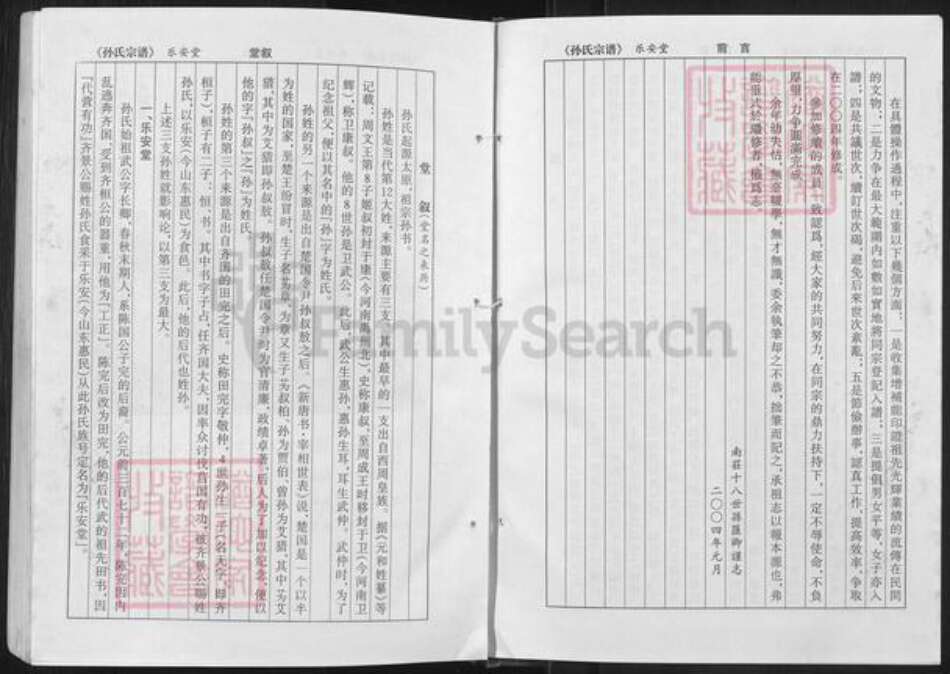 《孙氏宗谱》 乐安堂 前言
在具體操作過程中，注重以下幾個方面：一是收集增補能印證祖先光輝業績的流傳在民間
的文物；二是力争在最大範圍内如數如實地將同宗登記入譜；三是提倡男女平等，女子亦入
譜；四是共議世次，續訂世次碣，避免后來世次紊亂；五是節儉辦事，認真工作，提高效率，争取
在二〇〇四年修成。
參加修續的成員一致認爲，經大家的共同努力，在同宗的鼎力扶持下，一定不辱使命，不負
厚望，力争圆滿完成。
余年幼失怙，無意輟學，無才無識，委余執筆却之不恭，拙筆而記之，承祖志以報本源也，弗
能垂式於繼修者，權爲志。
南莊十八世孫匯卿谨志
二〇〇四年元月
《孙氏宗谱》 乐安堂 堂叙
堂 叙（堂名之来历）
孙氏起源太原，祖宗孙书。
孙姓是当代第12大姓，来源主要有三支，其中最早的一支出自西周皇族。据《元和姓纂》等
记载：周文王第8子姬叔初封于康（今河南禹州北），史称康叔，至周成王时移封于卫（今河南卫
辉），称卫康叔。他的8世孙是卫武公。此后，武公生惠孙，惠孙生耳，耳生武仲。武仲时，为了
纪念祖父，便以其名中的「孙」字为姓氏。
孙姓的另一个来源是出自楚国令尹孙叔敖之后。《新唐书·宰相世表》说，楚国是一个以芈
为姓的国家，至楚王蚡冒时，生子名为章，为章又生子为叔柏，孙为贾伯，曾孙为艾猎。其中为艾
猎，其中为艾猎即孙叔敖。孙叔敖任楚国令尹时为官清廉，政绩卓著，后人为了加以纪念，便以
他的字「孙叔」之「孙」为姓氏。
孙姓的第三个来源是出自齐国的田完之后。史称田完字敬仲，4世孙生二子（名无宇，即齐
桓子），桓子有二子：恒、书。其中书字子占，任齐国大夫，因率众讨伐莒国有功，被齐景公赐姓
孙氏，以乐安（今山东惠民）为食邑。此后，他的后代也姓孙。
上述三支孙姓就影响论，以第三支为最大。
一、乐安堂
孙氏始祖武公字长卿，春秋末期人，系陈国公子完的后裔。公元前三百七十二年，陈完因内
乱逃奔齐国，受到齐桓公的器重，用他为「工正」。陈完后改为田完，他的后代武的祖先田书，因
「代莒有功」齐景公赐姓孙氏食采于乐安（今山东惠民）从此孙氏族号定名为「乐安堂」。
FamilySearch